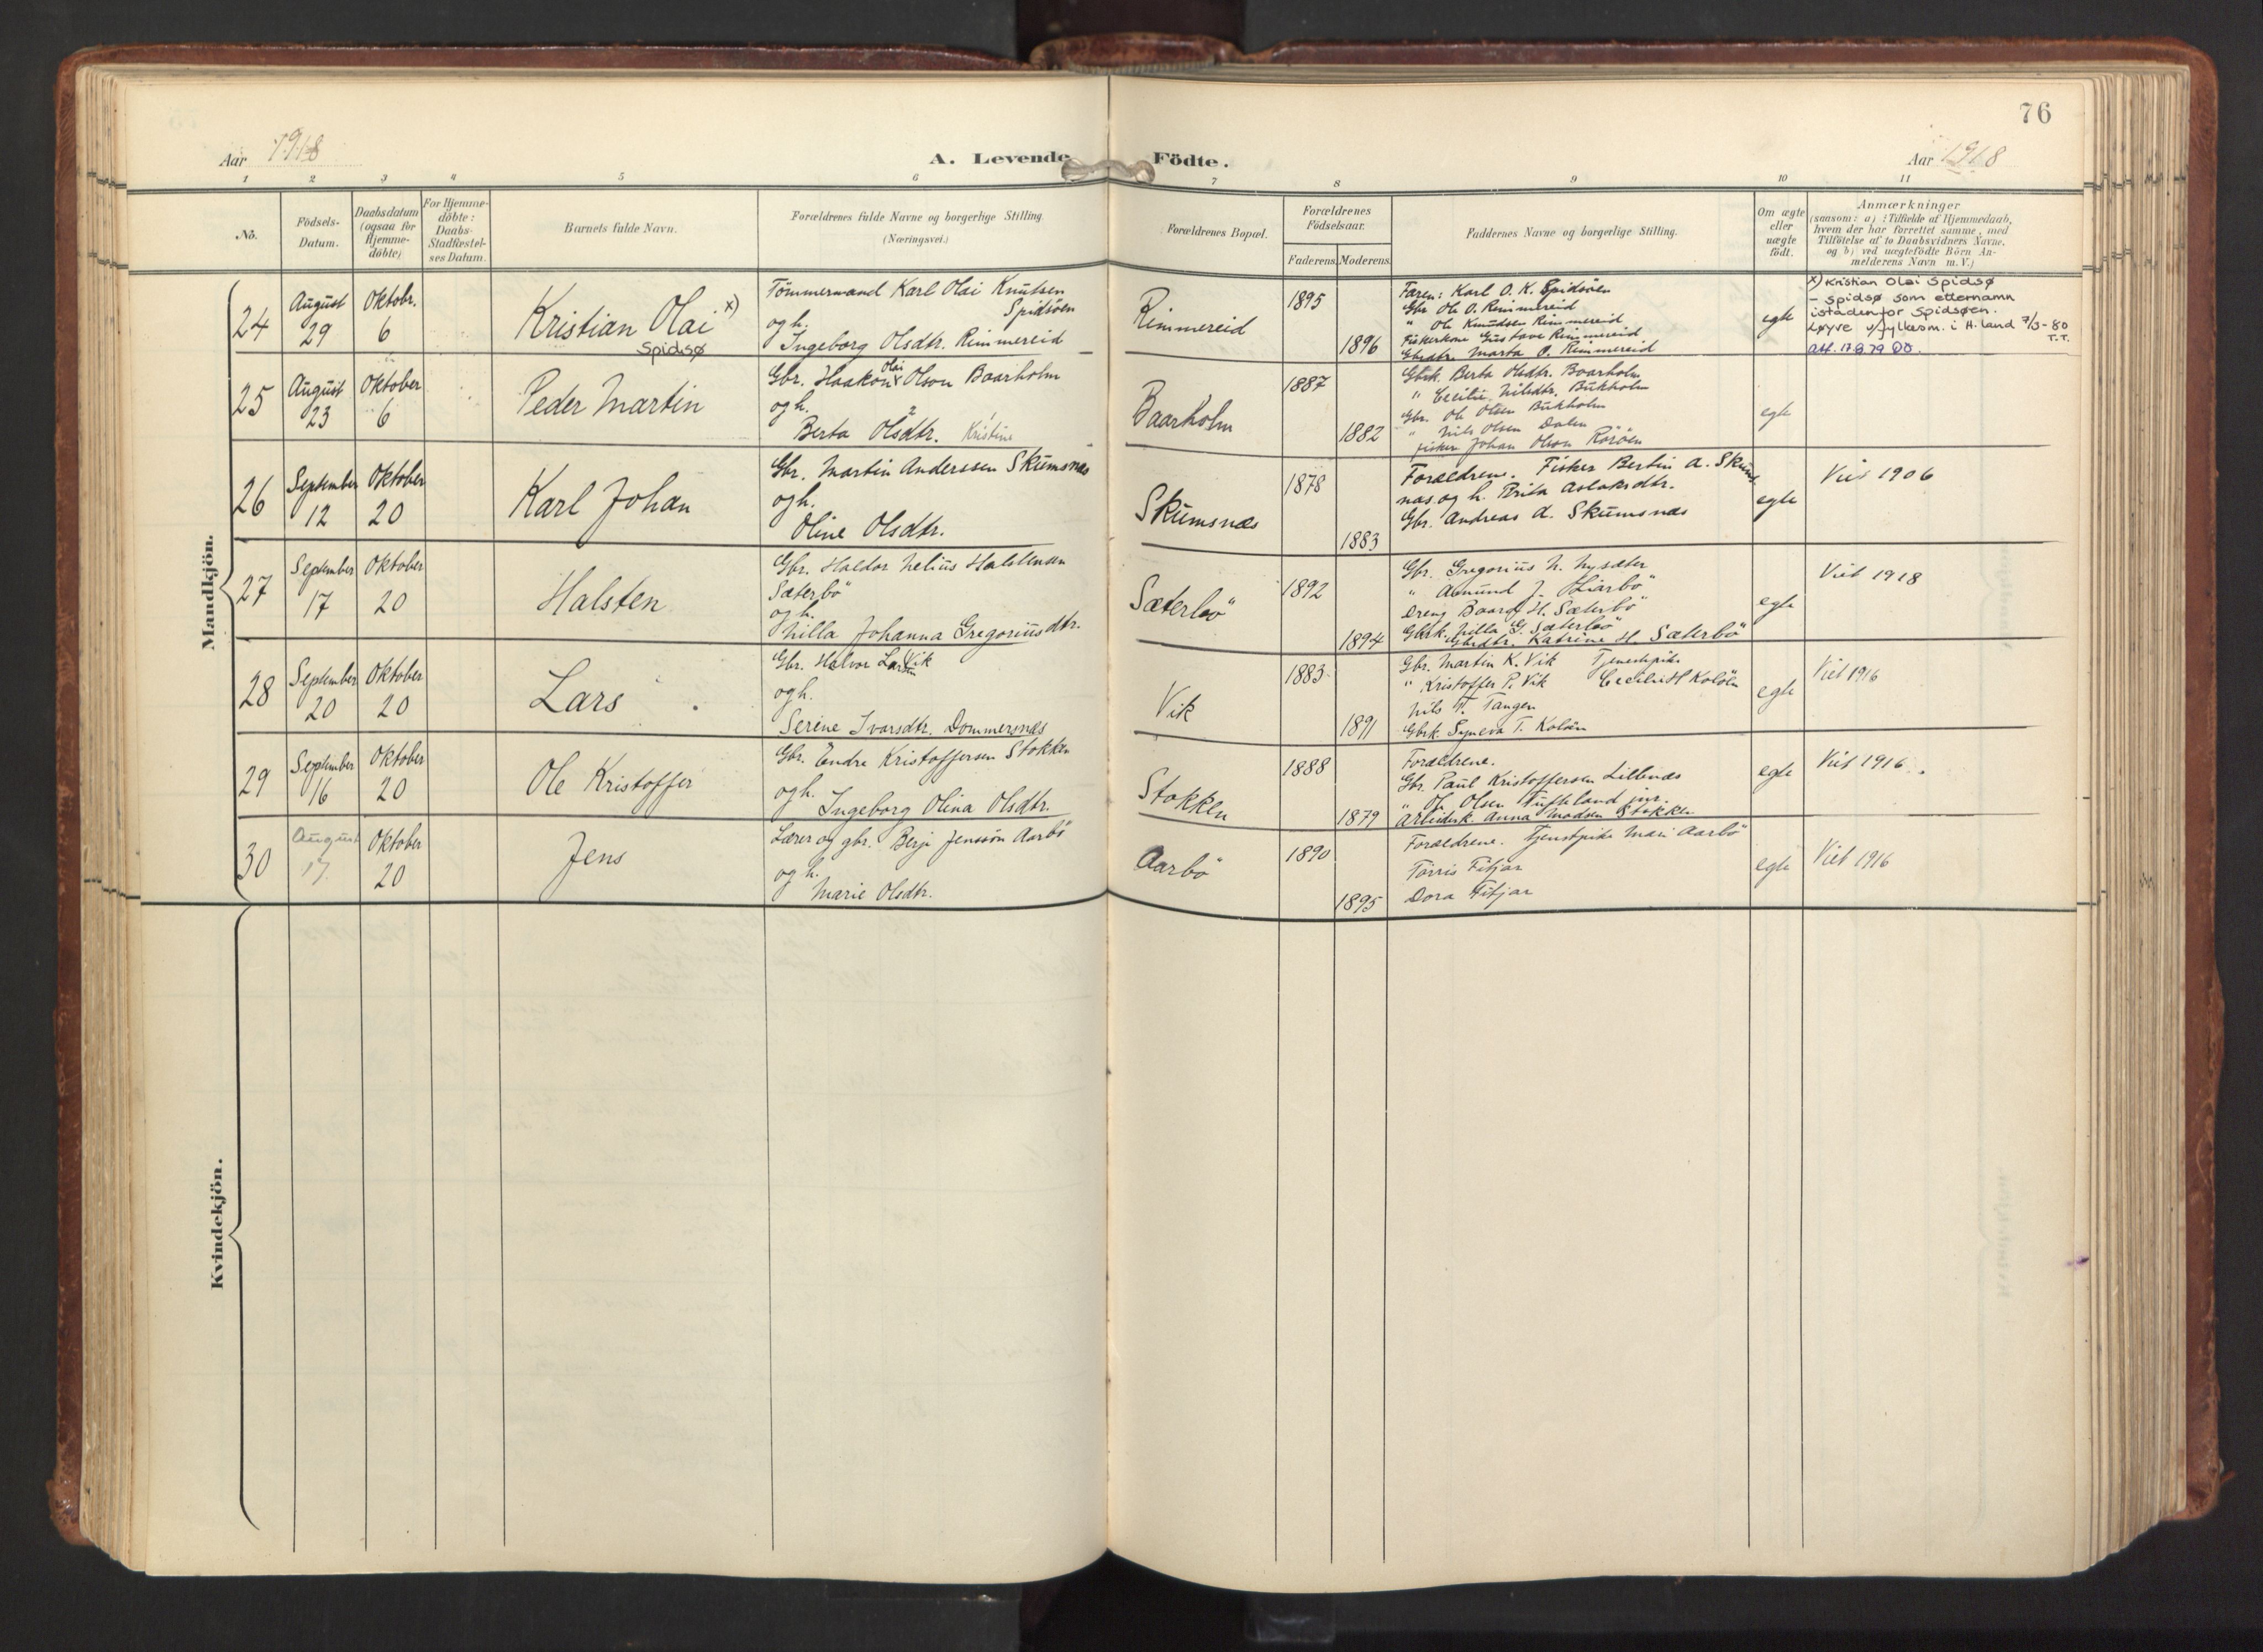 76
Aar 1918
A. Levende Födte.
Aar 1918
1 2 3 4 5 6 7 8 9 10 11
No.
Födsels-
Datum.
Daabsdatum
(ogsaa for
Hjemme-
döbte)
For Hjemme-
döbte:
Daabs-
Stadfæstel-
ses Datum.
Barnets fulde Navn.
Forældrenes fulde Navne og borgerlige Stilling.
(Næringsvei.)
Forældrenes Bopæl.
Forældrenes
Födselsaar.
Faderens. Moderens.
Faddernes Navne og borgerlige Stilling.
Om ægte
eller
uægte
födt.
Anmærkninger
(saasom: a) i Tilfælde af Hjemmedaab,
hvem der har forrettet samme, med
Tilföielse af to Daabsvidners Navne,
og b) ved uægtefödte Börn An-
melderens Navn m. V.)
Mandkjön.
24
August
29
Oktobr.
6
Kristian Olai x)
Spidsø
Tömmermand Karl Olai Knutsen
Spidsöen
og h.
Ingeborg Olsdtr. Rimmereid
Rimmereid
1895
1896
Faren: Karl O. K. Spidsöen
Gbr. Ole O. Rimmereid
" Ole Knudsen Rimmereid
Fiskerkone Gustave Rimmereid
Gbrdtr. Marta O. Rimmereid
egte
x) Kristian Olai Spidsø
- Spidsø som etternamn
istadenfor Spidsøen.
Løyve v/fylkesm. i H.land 7/3-80
T.T.
Att. 17.8.79 OO.
25
August
23
Oktober
6
Peder Martin
Gbr. Haakon Olai Olson Baarholm
og h.
Berta Olsdtr. Kristine
Baarholm
1887
1882
Gbrk. Berta Olsdtr. Baarholm
" Cecilie Nilsdtr. Bukholm
Gbr. Ole Olsen Bukholm
" Nils Olsen Dalen
fisker Johan Olson Rösöen
egte
26
September
12
Oktober
20
Karl Johan
Gbr. Martin Anderssen Skumsnæs
og h.
Oline Olsdtr.
Skumsnæs
1878
1883
Forældrene. Fisker Bertin A. Skums-
nas og h. Brita Aslaksdtr.
Gbr. Andreas A. Skumsnæs
egte
Viet 1906
27
September
17
Oktober
20
Halsten
Gbr. Haldor Nelius Halstensen
Sæterbö
og h.
Nilla Johanna Gregoriusdtr.
Sæterbö
1892
1894
Gbr. Gregorius N. Nysæter
" Amund J. Liarbö
Dreng Baard H. Sæterbö
Gbrk. Nilla G. Sæterbö
Gbrdtr. Katrine H Sæterbö
egte
Viet 1918
28
September
20
Oktober
20
Lars
Gbr. Halvor Larsen Vik
og h.
Serine Ivarsdtr. Dommersnæs
Vik
1883
1891
Gbr. Martin K. Vik Tjenestpike
" Kristoffer P. Vik Cecilie H Kolöen
Nils T. Tangen
Gbrk. Syneva T. Kolöen
egte
Viet 1916
29
September
16
Oktober
20
Ole Kristoffer
Gbr. Endre Kristoffersen Stokken
og h.
Ingeborg Olina Olsdtr.
Stokken
1888
1879
Forældrene.
Gbr. Paul Kristoffersen Lillenæs
" Ole Olsen Tufteland jnr.
Arbeiderk. Anna Madsen Stokken
egte
Viet 1916
30
August
17
Oktober
20
Jens
Lærer og gbr. Berje Jenssön Aarbö
og h.
Marie Olsdtr.
Aarbö
1890
1895
Forældrene. Tjenestpike Mari Aarbö
Törris Fitjar
Dora Fitjar
egte
Viet 1916
Kvindekjön.